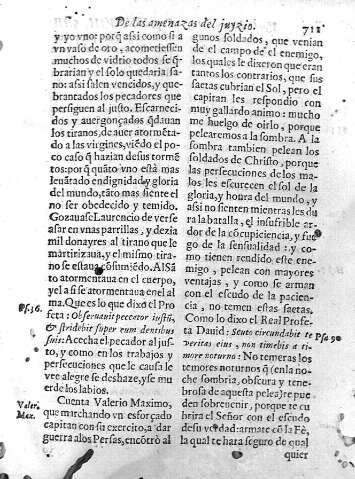 De las amenazas del juyzio. 711
y yo vno: porq̃ assi como si a
vn vaso de oro, acometiessen
muchos de vidrio todos se q̃-
brarian y el solo quedaria sa-
no: assi salen vencidos, y que-
brantados los pecadores que
persiguen al justo. Escarneci-
dos y auergonçados q̃dauan
los tiranos, de auer atormẽta-
do a las virgines, viẽdo el po-
co caso q̃ hazian desus tormẽ-
tos: porq̃ quãto vno està mas
leuãtado en dignidad y gloria
del mundo, tãto mas siente el
no ser obedecido y temido.
Gozauase Laurencio de verse
asar en vnas parrillas, y dezia
mil donayres al tirano que le
martirizaua, y el mismo tira-
no se estaua cõsumiẽdo. Al Sã-
to atormentaua en el cuerpo,
y el a si se atormentaua en el al
ma. Que es lo que dixo el Pro
Ps. 36. feta: Obseruauit peccator iustũ,
& stridebit super eum dentibus
suis: Acecha el pecador al jus-
to, y como en los trabajos y
persecuciones que le causa le
vee alegre se deshaze, y se mu
erde los labios.
Valer. Cuenta Valerio Maximo,
Max. que marchando vn esforçado
capitan con su exercito, a dar
guerra a los Persas, encõtrò al
gunos soldados, que venian
de el campo de el enemigo,
los quales le dixeron que eran
tantos los contrarios, que sus
saetas cubrian el Sol, pero el
capitan les respondio con
muy gallardo animo: mucho
me huelgo de oirlo, porque
pelearemos a la sombra. A la
sombra tambien pelean los
soldados de Christo, porque
las persecuciones de los ma-
los les escurecen el sol de la
gloria, y honra del mundo, y
assi no sienten mientras les du
ra la batalla, el insufrible ar-
dor de la cõcupiciencia, y fue
go de la sensualidad: y co-
mo tienen rendido este ene-
migo, pelean con mayores
ventajas, y como se arman
con el escudo de la pacien-
cia, no temen estas saetas.
Como lo dixo el Real Profe-
ta Dauid: Scuto circundabit te Psa. 90
veritas eius, non timebis a ti-
more noturno: No temeras los
temores noturnos q̃ (en la no-
che sombria, obscura y tene-
brosa de aquesta pelea) te pue
den sobreuenir, porque te cu
brira el Señor con el escudo
de su verdad: armate cõ la Fè,
la qual te hara seguro de qual
quier